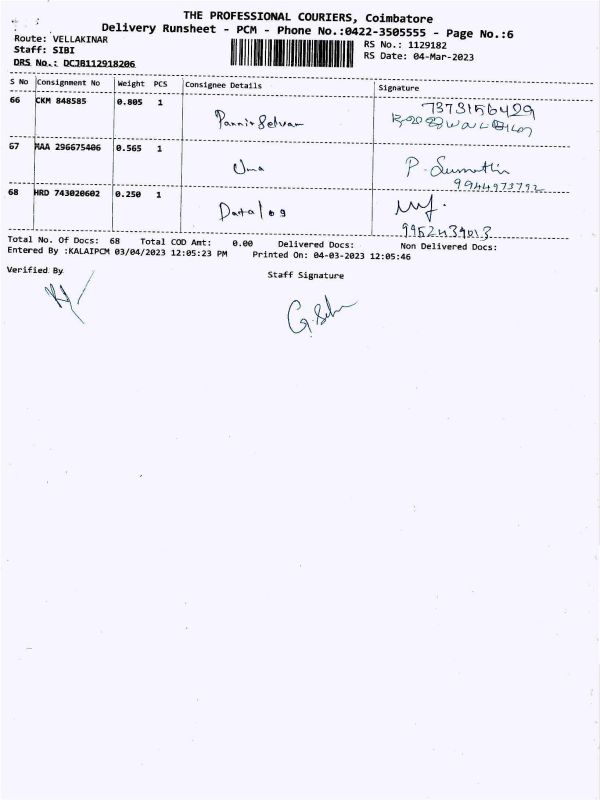 THE PROFESSIONAL COURIERS, Coimbatore
Delivery Runsheet - PCM - Phone No.:0422-3505555 - Page No.:6
Route: VELLAKINAR
RS No.: 1129182
Staff: SIBI
RS Date: 04-Mar-2023
DRS No.: DCJB112918206
S No Consignment No Weight PCS Consignee Details Signature
66 CKM 848585 0.805 1 Pannir Selvam 7373156429
67 MAA 296675406 0.565 1 Uma P. Sumathi
9944973792
68 HRD 743020602 0.250 1 Datalog
9952439013
Total No. Of Docs: 68 Total COD Amt: 0.00 Delivered Docs: Non Delivered Docs:
Entered By :KALAIPCM 03/04/2023 12:05:23 PM Printed On: 04-03-2023 12:05:46
Verified By Staff Signature